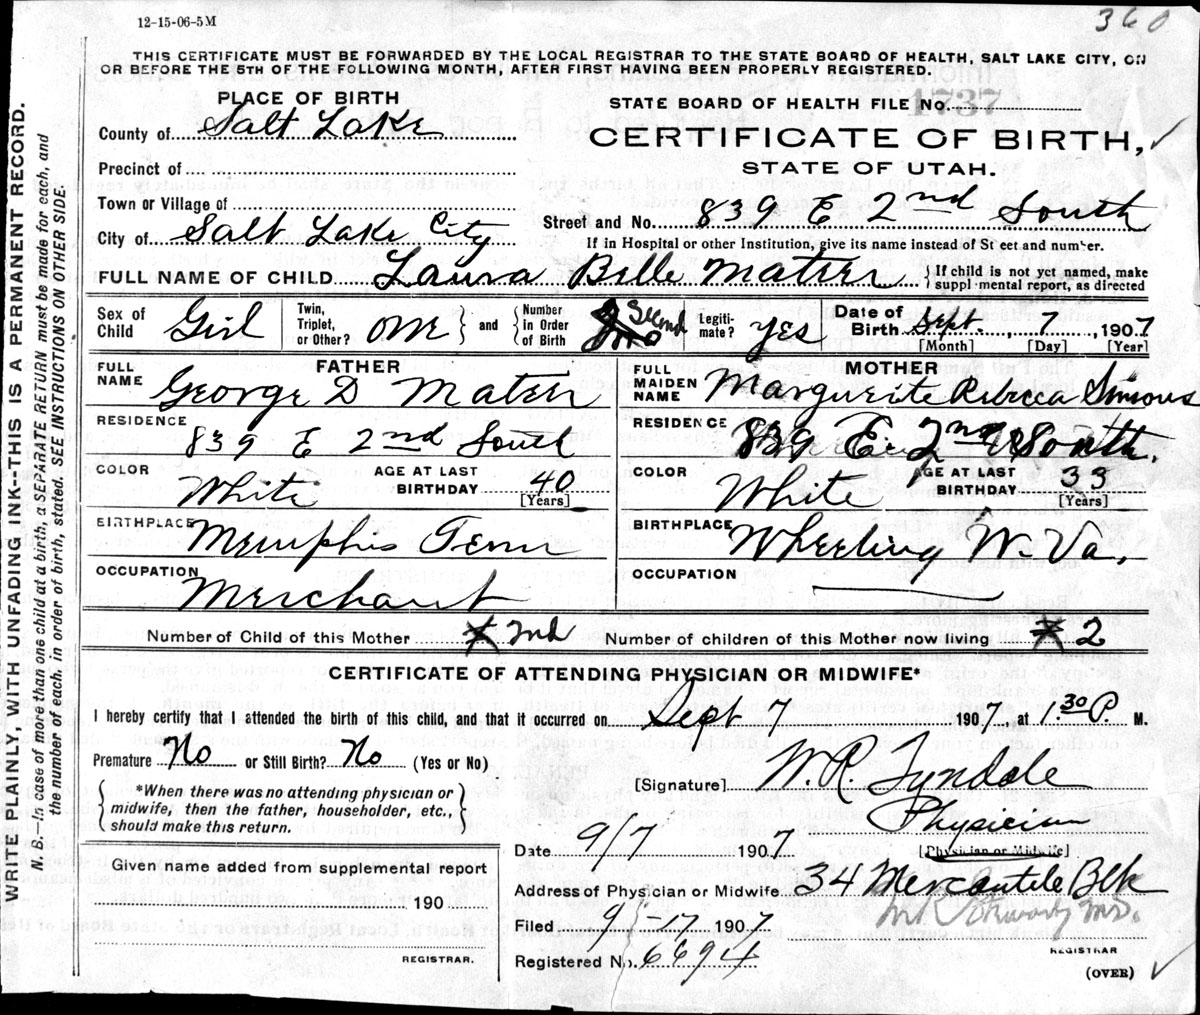 12-15-06-5M
360
THIS CERTIFICATE MUST BE FORWARDED BY THE LOCAL REGISTRAR TO THE STATE BOARD OF HEALTH, SALT LAKE CITY, ON
OR BEFORE THE 5TH OF THE FOLLOWING MONTH, AFTER FIRST HAVING BEEN PROPERLY REGISTERED.
PLACE OF BIRTH
STATE BOARD OF HEALTH FILE No. 1737
County of Salt Lake
CERTIFICATE OF BIRTH,
Precinct of
STATE OF UTAH.
Town or Village of
Street and No. 839 E 2nd South
City of Salt Lake City
If in Hospital or other Institution, give its name instead of St eet and number.
FULL NAME OF CHILD Laura Belle Mateer
} If child is not yet named, make
suppl mental report, as directed
Sex of Child Girl
Twin, Triplet, or Other? one } and { Number in Order of Birth Second
Legiti-mate? yes
Date of Birth Sept. 7, 1907
[Month] [Day] [Year]
FATHER
MOTHER
FULL NAME George D Mateer
FULL MAIDEN NAME Marguerite Rebecca Simons
RESIDENCE 839 E 2nd South
RESIDENCE 839 E. 2nd South.
COLOR White AGE AT LAST BIRTHDAY 40 [Years]
COLOR White AGE AT LAST BIRTHDAY 33 [Years]
BIRTHPLACE Memphis Tenn
BIRTHPLACE Wheeling W. Va.
OCCUPATION Merchant
OCCUPATION
Number of Child of this Mother 2nd Number of children of this Mother now living 2
CERTIFICATE OF ATTENDING PHYSICIAN OR MIDWIFE*
I hereby certify that I attended the birth of this child, and that it occurred on Sept 7 1907, at 1.30 P. M.
Premature No or Still Birth? No (Yes or No)
[Signature] W. R. Tyndale
*When there was no attending physician or
midwife, then the father, householder, etc.,
should make this return.
Physician
Date 9/7 1907
[Physician or Midwife]
Given name added from supplemental report
Address of Physician or Midwife 34 Mercantile Blk
190
Filed 9-17 1907
M.D.
REGISTRAR.
REGISTRAR
Registered No. 6694
(OVER)
WRITE PLAINLY, WITH UNFADING INK--THIS IS A PERMANENT RECORD.
N. B.—In case of more than one child at a birth, a SEPARATE RETURN must be made for each, and
the number of each, in order of birth, stated. SEE INSTRUCTIONS ON OTHER SIDE.